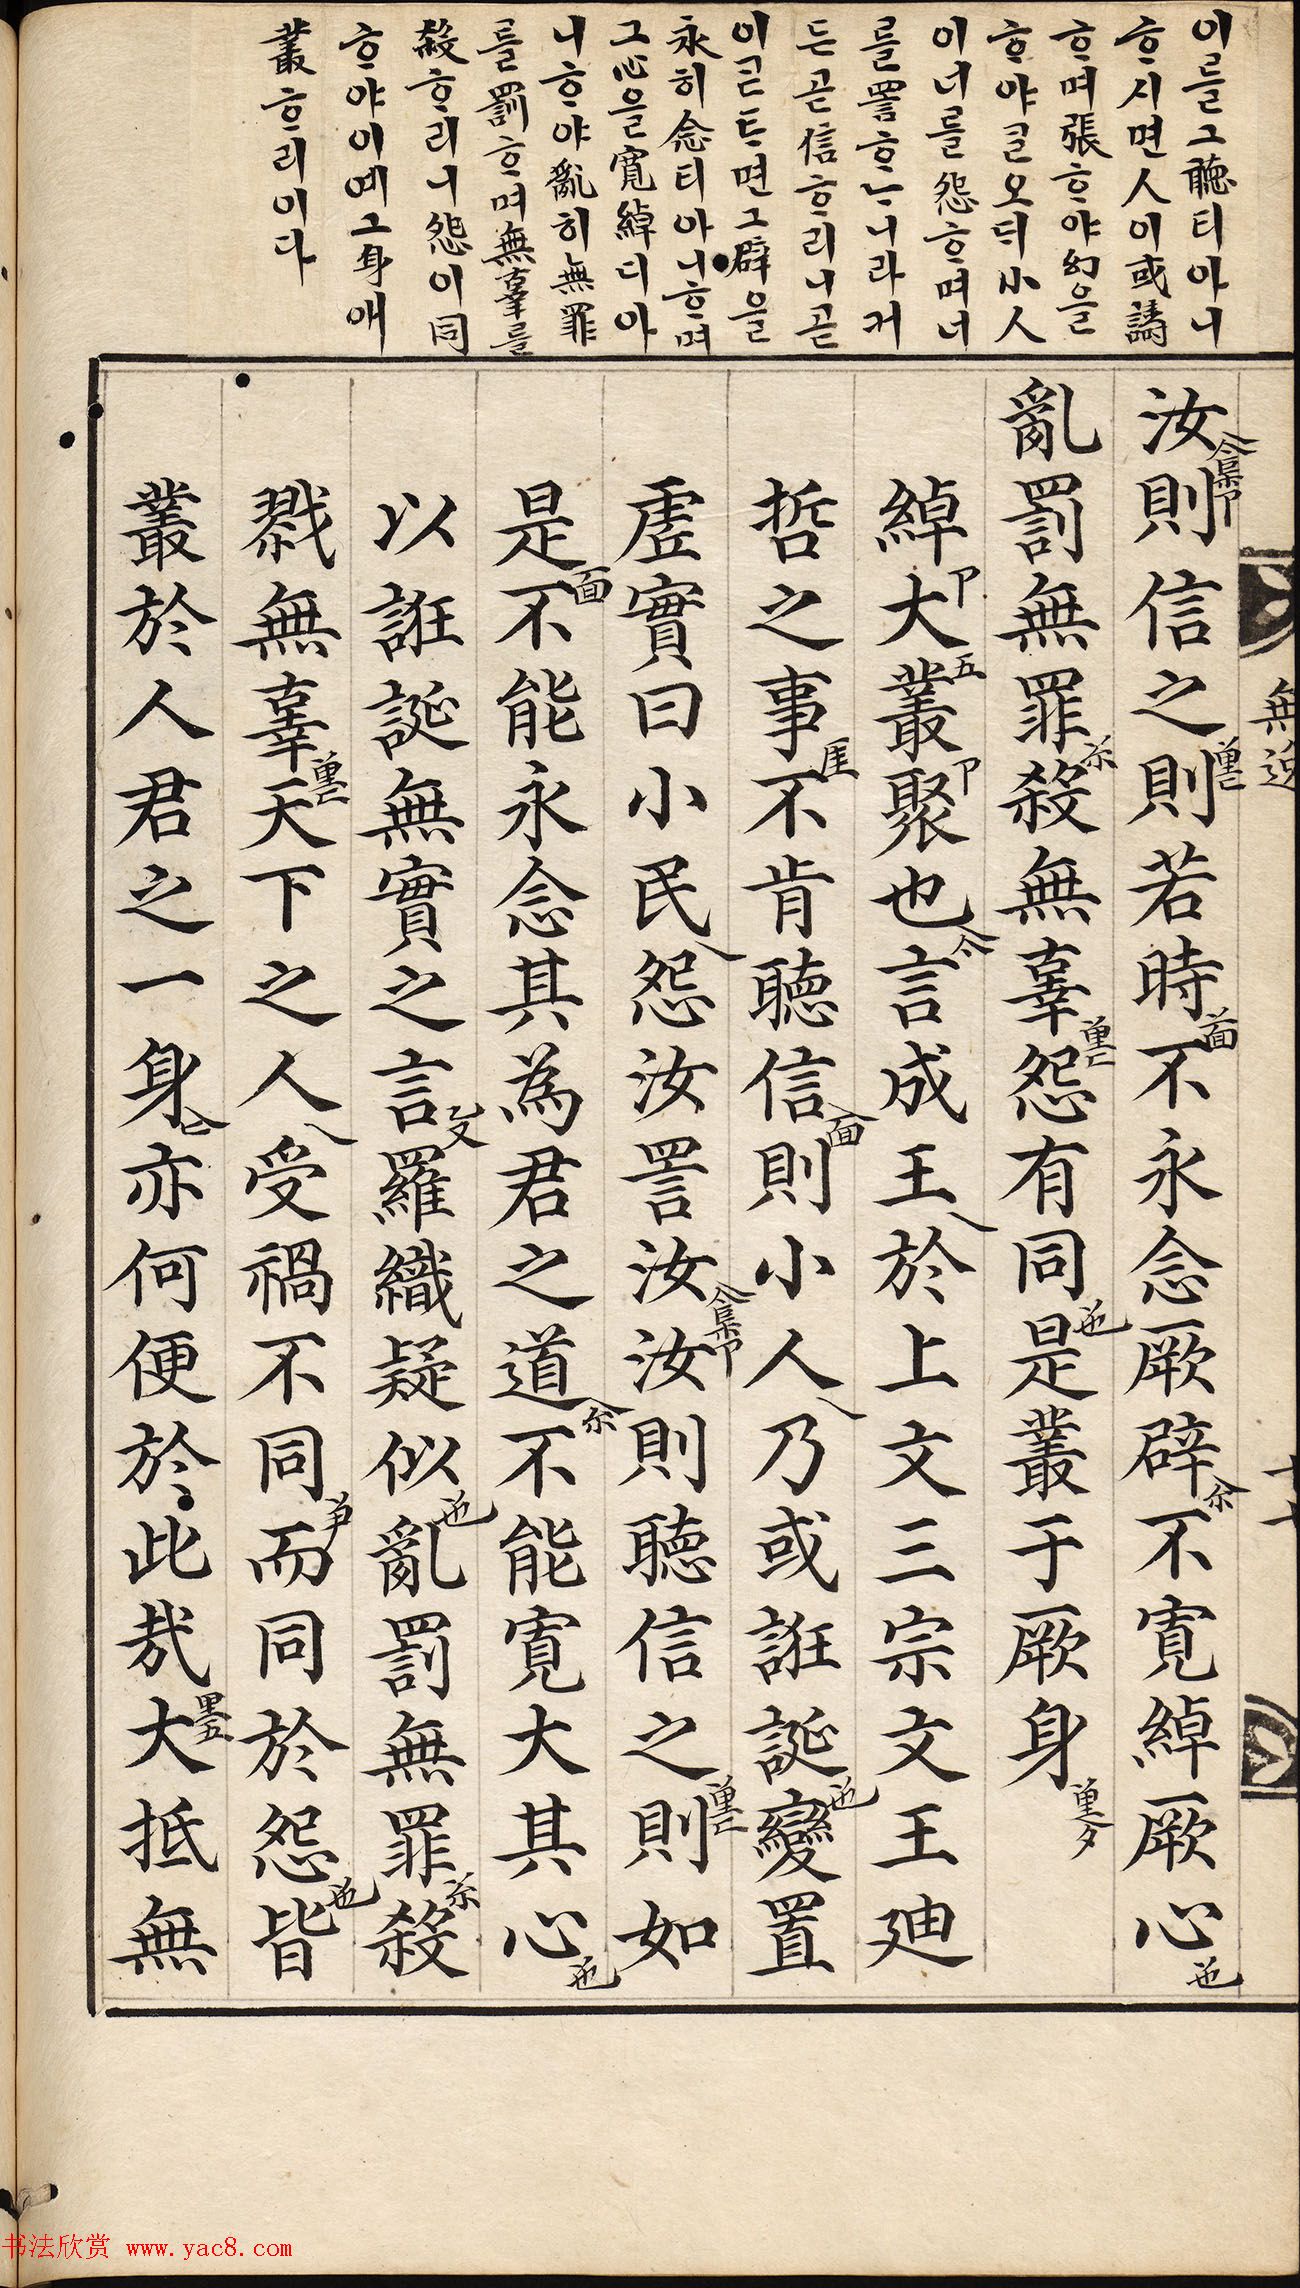 이를그聽티아니
ᄒᆞ시면人이或譸
ᄒᆞ며張ᄒᆞ야幻을
ᄒᆞ야ᄀᆞᆯ오ᄃᆡ小人
이너를怨ᄒᆞ며너
를詈ᄒᆞᄂᆞ니라커
든곧信ᄒᆞ리니곧
이ᄀᆞᆮᄐᆞ면그辟을
永히念티아니ᄒᆞ며
그心을寬綽디아
니ᄒᆞ야亂히無罪
를罰ᄒᆞ며無辜를
殺ᄒᆞ리니怨이同
ᄒᆞ야이예그身애
叢ᄒᆞ리이다
汝則信之則若時不永念厥辟不寬綽厥心
亂罰無罪殺無辜怨有同是叢于厥身
綽大叢聚也言成王於上文三宗文王迪
哲之事不肯聽信則小人乃或誑誕變置
虛實曰小民怨汝詈汝汝則聽信之則如
是不能永念其為君之道不能寬大其心
以誑誕無實之言羅織疑似亂罰無罪殺
戮無辜天下之人受禍不同而同於怨皆
叢於人君之一身亦何便於此哉大抵無
無逸
书法欣赏 www.yac8.com